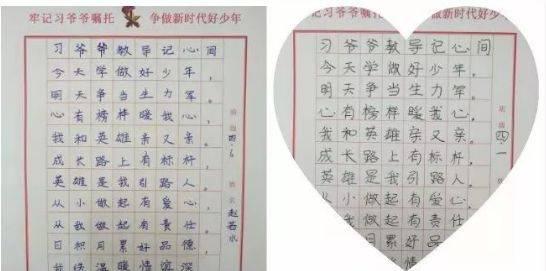 牢记习爷爷嘱托 争做新时代好少年
习爷爷教导记心间
今天学做好少年，
明天争当生力军。
心有榜样暖我心，
我和英雄亲又亲。
成长路上有标杆，
英雄是我引路人。
从小做起有爱心，
从我做起有责任。
日积月累好品德，
温暖情
班级
四.6
姓名
赵若水
习爷爷教导记心间
今天学做好少年，
明天争当生力军
心有榜样暖我心，
我和英雄亲又亲。
成长路上有标杆
英雄是我引路人
小做起有爱心
做起有责任
月累好品
暖情
班级
四.1